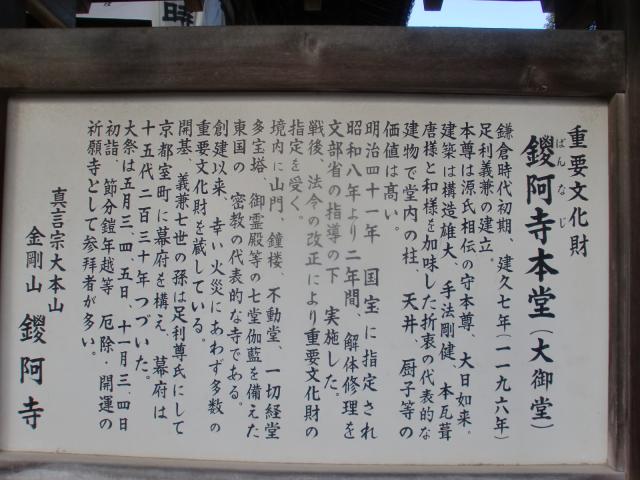 重要文化財
鑁阿寺本堂（大御堂）
ばんなじ
鎌倉時代初期、建久七年（一一九六年）
足利義兼の建立。
本尊は源氏相伝の守本尊、大日如来。
建築は構造雄大、手法剛健、本瓦葺
唐様と和様を加味した折衷の代表的な
建物で堂内の柱、天井、厨子等の
価値は高い。
明治四十一年　国宝に指定され
昭和八年より二年間、解体修理を
文部省の指導の下　実施した。
戦後、法令の改正により重要文化財の
指定を受く。
境内に山門、鐘楼、不動堂、一切経堂
多宝塔、御霊殿等の七堂伽藍を備えた
東国の　密教の代表的な寺である。
創建以来　幸い火災にあわず多数の
重要文化財を蔵している。
開基、義兼七世の孫は足利尊氏にして
京都室町に幕府を構え　幕府は
十五代二百三十年つづいた。
大祭は五月三、四、五日、十一月三、四日
初詣、節分鎧年越等　厄除・開運の
祈願寺として参拝者が多い。
真言宗大本山
金剛山　鑁阿寺
時